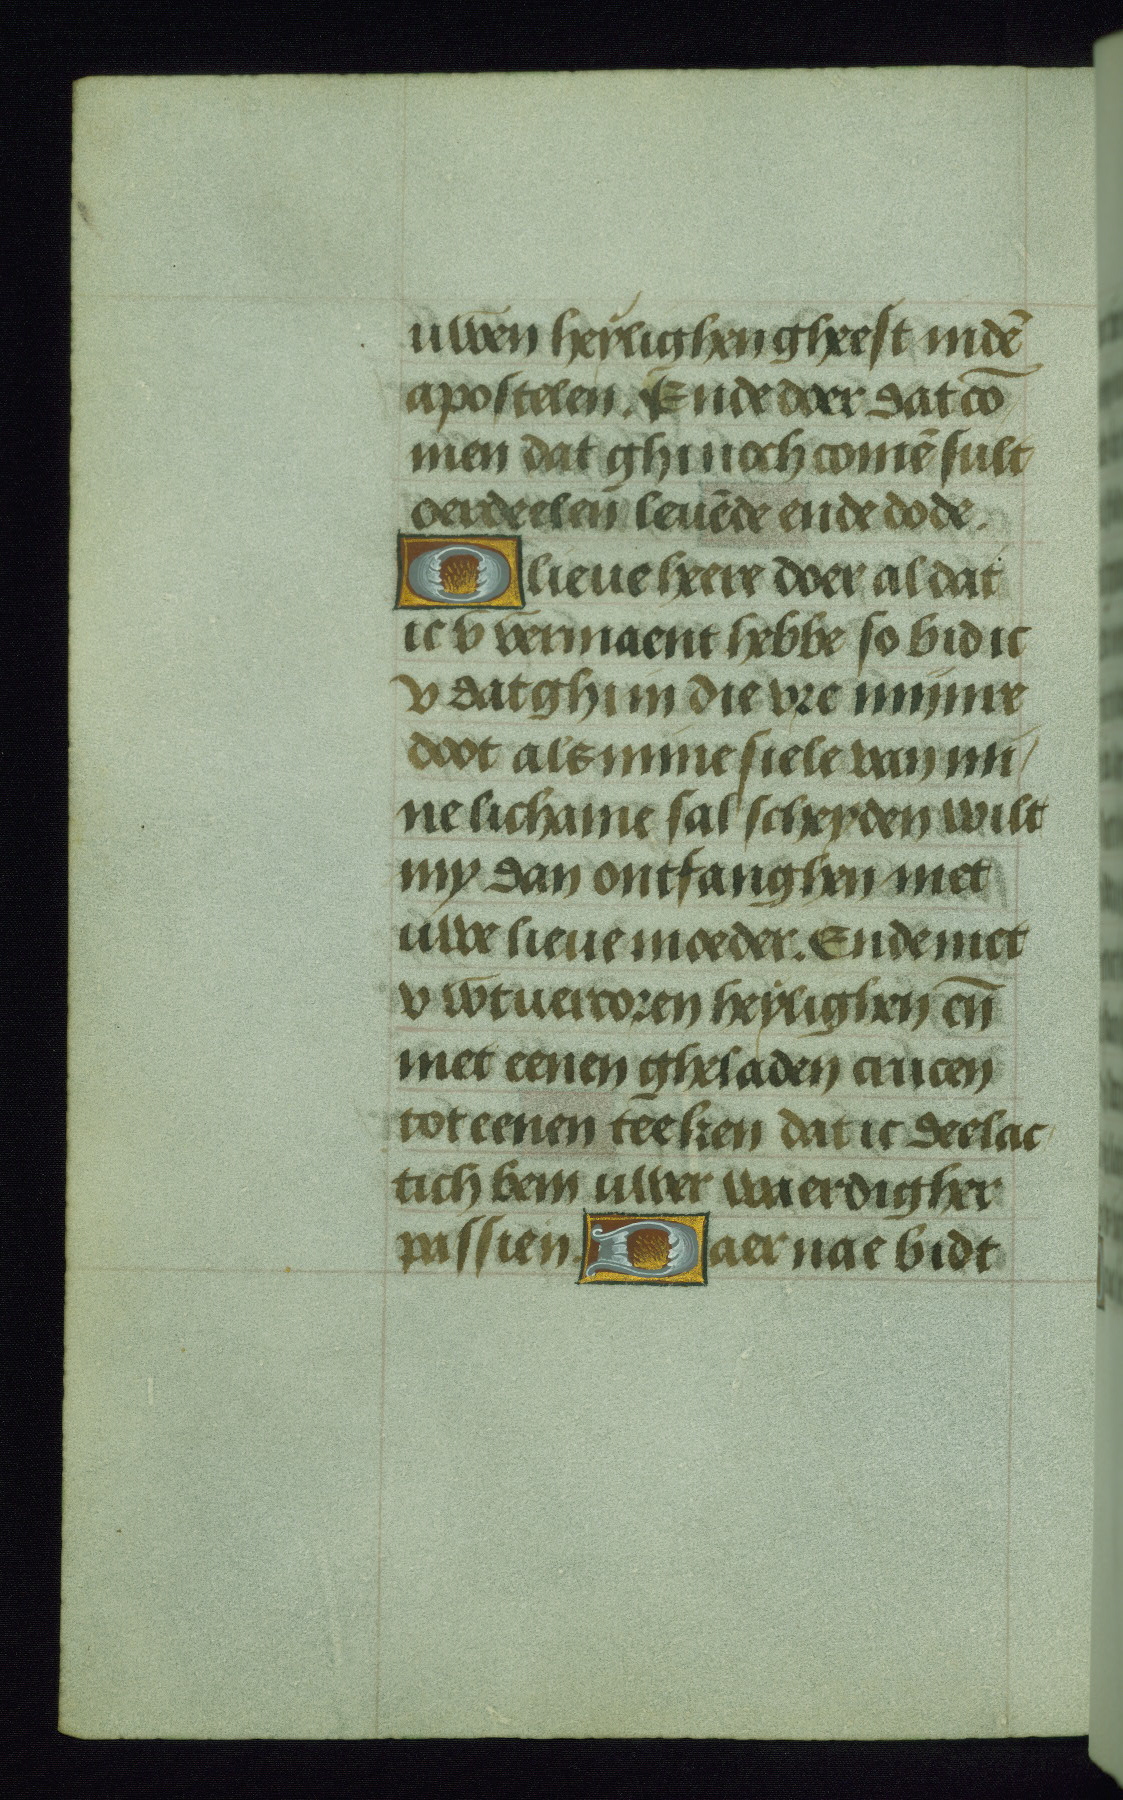 uwen heylighen gheest indē
apostelen. Ende doer dat cō
men dat ghi noch comē sult
oerdeelen leuēde ende dode.
O lieue heere doer al dat
ic v vermaent hebbe so bid ic
v dat ghi in die vre mijnre
doot als mine siele van mi/
ne lichame sal scheyden wilt
my dan ontfanghen met
uwe lieue moeder. Ende met
v wtuercoren heylighen eñ
met eenen gheladen crucen
tot eenen teeken dat ic deelac/
tich bem uwer waerdigher
passien. Daer nae bidt